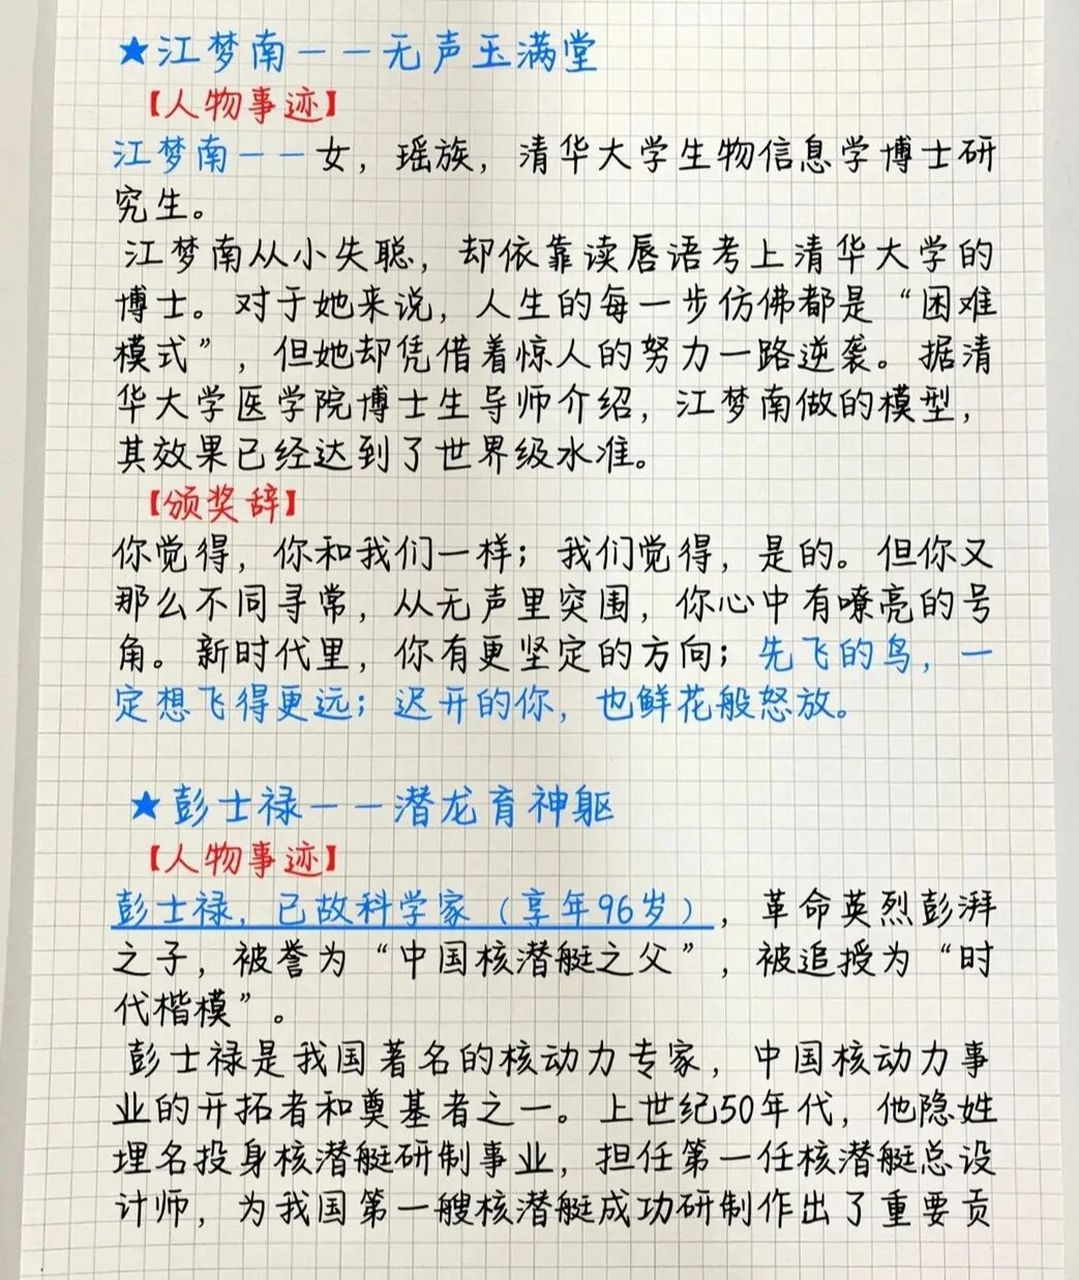 ★江梦南——无声玉满堂
【人物事迹】
江梦南——女，瑶族，清华大学生物信息学博士研
究生。
江梦南从小失聪，却依靠读唇语考上清华大学的
博士。对于她来说，人生的每一步仿佛都是“困难
模式”，但她却凭借着惊人的努力一路逆袭。据清
华大学医学院博士生导师介绍，江梦南做的模型，
其效果已经达到了世界级水准。
【颁奖辞】
你觉得，你和我们一样；我们觉得，是的。但你又
那么不同寻常，从无声里突围，你心中有嘹亮的号
角。新时代里，你有更坚定的方向；先飞的鸟，一
定想飞得更远；迟开的你，也鲜花般怒放。
★彭士禄——潜龙育神躯
【人物事迹】
彭士禄，已故科学家（享年96岁），革命英烈彭湃
之子，被誉为“中国核潜艇之父”，被追授为“时
代楷模”。
彭士禄是我国著名的核动力专家，中国核动力事
业的开拓者和奠基者之一。上世纪50年代，他隐姓
埋名投身核潜艇研制事业，担任第一任核潜艇总设
计师，为我国第一艘核潜艇成功研制作出了重要贡